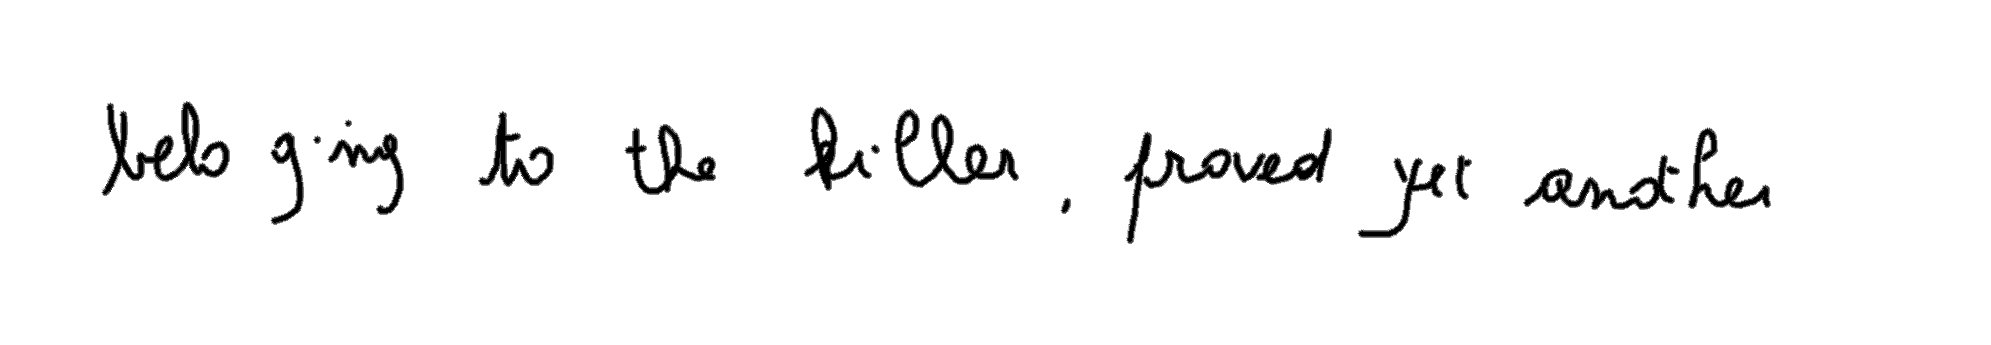 belo ging to the killer, proved yet another